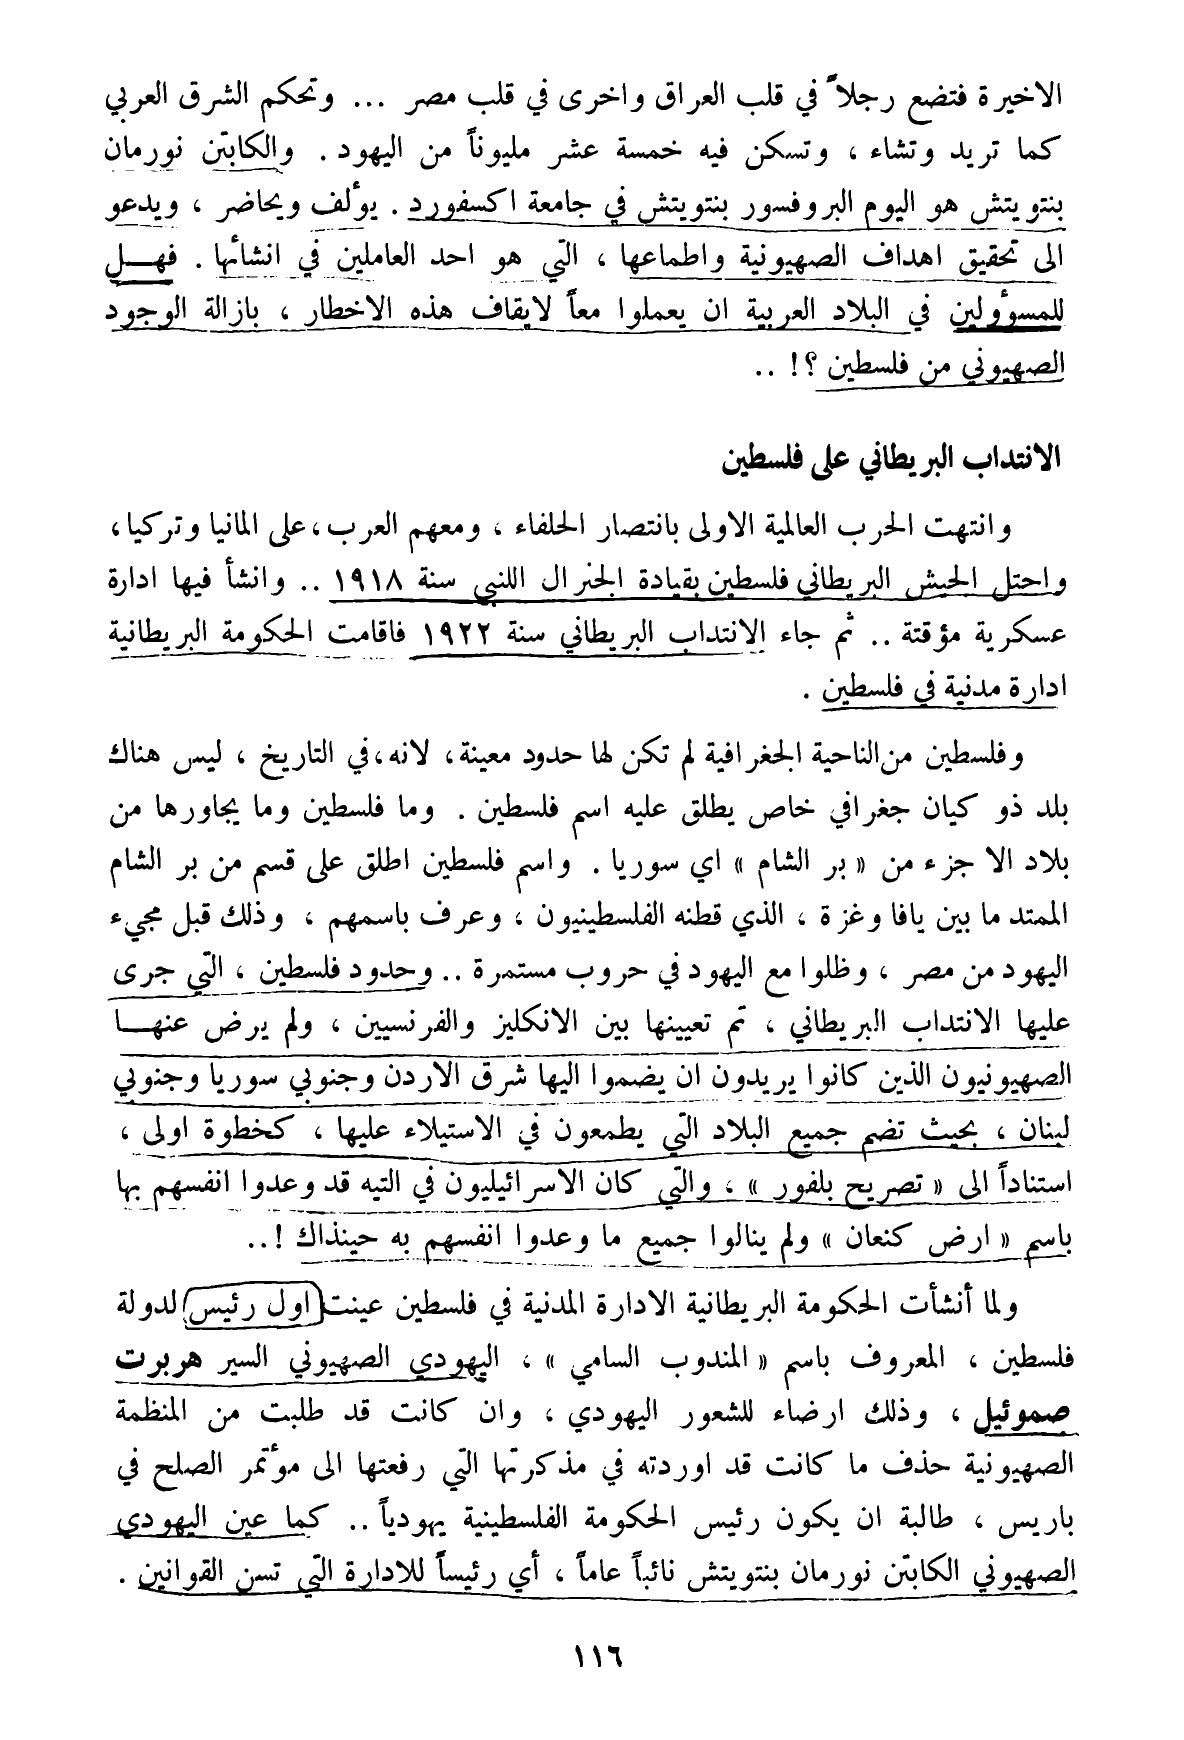 الاخيرة فتضع رجلاً في قلب العراق واخرى في قلب مصر ... وتحكم الشرق العربي
كما تريد وتشاء ، وتسكن فيه خمسة عشر مليوناً من اليهود . والكابتن نورمان
بنتويتش هو اليوم البروفسور بنتويتش في جامعة اكسفورد . يؤلف ويحاضر ، ويدعو
الى تحقيق اهداف الصهيونية واطماعها ، التي هو احد العاملين في انشائها . فهـــل
للمسؤولين في البلاد العربية ان يعملوا معاً لايقاف هذه الاخطار ، بازالة الوجود
الصهيوني من فلسطين ؟! ..
الانتداب البريطاني على فلسطين
وانتهت الحرب العالمية الاولى بانتصار الحلفاء ، ومعهم العرب ، على المانيا وتركيا ،
واحتل الجيش البريطاني فلسطين بقيادة الجنرال اللنبي سنة ١٩١٨ .. وانشأ فيها ادارة
عسكرية مؤقتة .. ثم جاء الانتداب البريطاني سنة ١٩٢٢ فاقامت الحكومة البريطانية
ادارة مدنية في فلسطين .
وفلسطين من الناحية الجغرافية لم تكن لها حدود معينة ، لانه ، في التاريخ ، ليس هناك
بلد ذو كيان جغرافي خاص يطلق عليه اسم فلسطين . وما فلسطين وما يجاورها من
بلاد الا جزء من « بر الشام » اي سوريا . واسم فلسطين اطلق على قسم من بر الشام
الممتد ما بين يافا وغزة ، الذي قطنه الفلسطينيون ، وعرف باسمهم ، وذلك قبل مجيء
اليهود من مصر ، وظلوا مع اليهود في حروب مستمرة .. وحدود فلسطين ، التي جرى
عليها الانتداب البريطاني ، تم تعيينها بين الانكليز والفرنسيين ، ولم يرض عنهـــا
الصهيونيون الذين كانوا يريدون ان يضموا اليها شرق الاردن وجنوبي سوريا وجنوبي
لبنان ، بحيث تضم جميع البلاد التي يطمعون في الاستيلاء عليها ، كخطوة اولى ،
استناداً الى « تصريح بلفور » ، والتي كان الاسرائيليون في التيه قد وعدوا انفسهم بها
باسم « ارض كنعان » ولم ينالوا جميع ما وعدوا انفسهم به حينذاك !..
ولما أنشأت الحكومة البريطانية الادارة المدنية في فلسطين عينت اول رئيس لدولة
فلسطين ، المعروف باسم « المندوب السامي » ، اليهودي الصهيوني السير هربرت
صموئيل ، وذلك ارضاء للشعور اليهودي ، وان كانت قد طلبت من المنظمة
الصهيونية حذف ما كانت قد اوردته في مذكرتها التي رفعتها الى مؤتمر الصلح في
باريس ، طالبة ان يكون رئيس الحكومة الفلسطينية يهودياً .. كما عين اليهودي
الصهيوني الكابتن نورمان بنتويتش نائباً عاماً ، أي رئيساً للادارة التي تسن القوانين .
١١٦